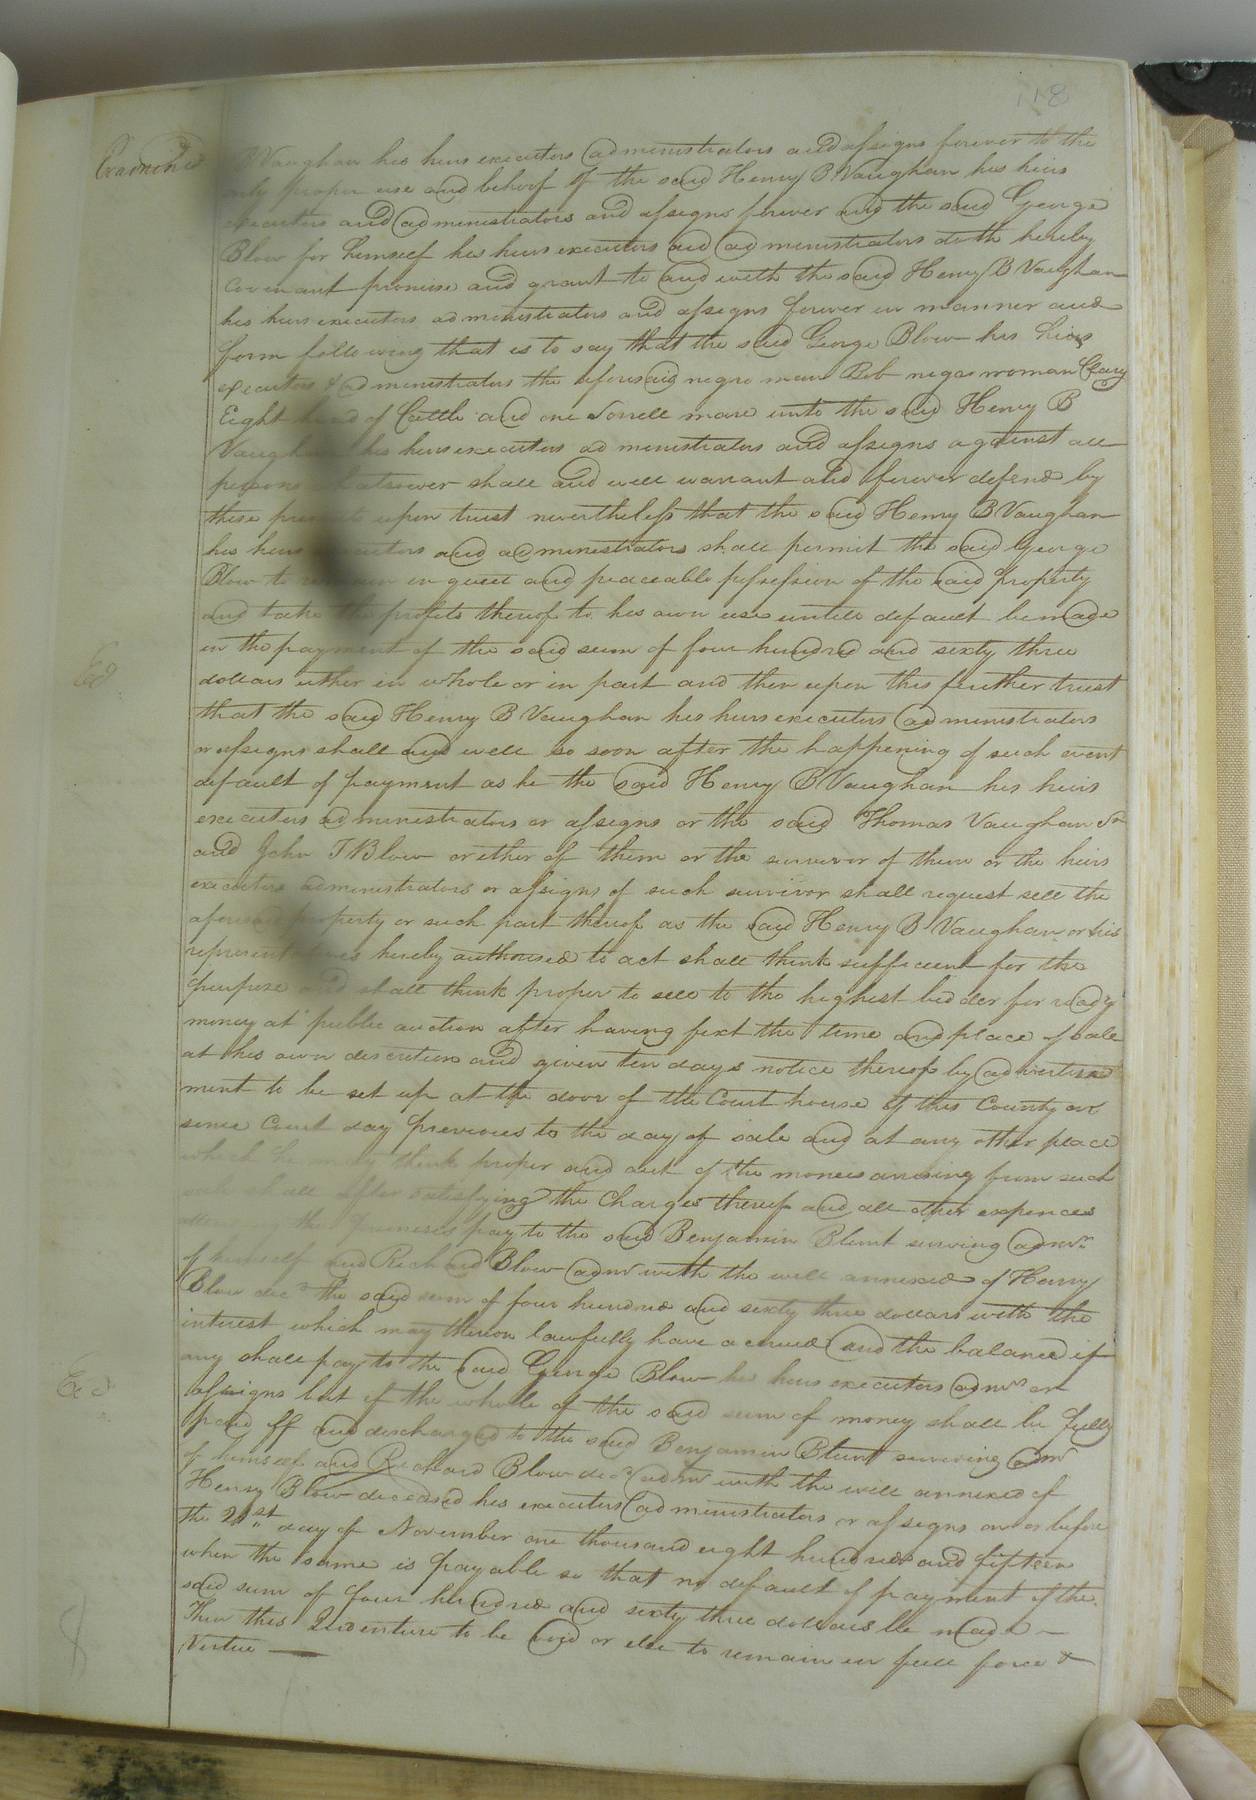 118
Examined
B Vaughan his heirs executors administrators and assigns forever to the
only proper use and behoof of the said Henry B Vaughan his heirs
executors and administrators and assigns forever and the said George
Blow for himself his heirs executors and administrators doth hereby
Covenant promise and grant to and with the said Henry B Vaughan
his heirs executors administrators and assigns forever in manner and
form following that is to say that the said George Blow his heirs
executors & administrators the aforesaid negro man Bob negro woman
Eight head of Cattle and one Sorrell mare unto the said Henry B
Vaughan his heirs executors administrators and assigns against all
persons whatsoever shall and will warrant and forever defend by
these presents upon trust nevertheless that the said Henry B Vaughan
his heirs executors and administrators shall permit the said George
Blow to remain in quiet and peaceable possession of the said property
and take the profits thereof to his own use untill default be made
in the payment of the said sum of four hundred and sixty three
dollars either in whole or in part and then upon this further trust
that the said Henry B Vaughan his heirs executors administrators
or assigns shall and will so soon after the happening of such event
default of payment as he the said Henry B Vaughan his heirs
executors administrators or assigns or the said Thomas Vaughan Sr
and John T Blow or either of them or the survivor of them or the heirs
executors administrators or assigns of such survivor shall request sell the
aforesaid property or such part thereof as the said Henry B Vaughan or his
representatives hereby authorised to act shall think sufficient for the
purpose and shall think proper to sell to the highest bidder for ready
money at public auction after having fixt the time and place of sale
at his own discretion and given ten days notice thereof by advertise
ment to be set up at the door of the Court house of this County on
some Court day previous to the day of sale and at any other place
which he may think proper and out of the monies arising from such
sale shall after satisfying the Charges thereof and all other expences
the premises pay to the said Benjamin Blunt surving admr
of himself and Richard Blow admr with the will annexed of Henry
Blow decd the said sum of four hundred and sixty three dollars with the
interest which may thereon lawfully have accrued and the balance if
any shall pay to the said George Blow his heirs executors admrs or
assigns but if the whole of the said sum of money shall be fully
paid off and discharged to the said Benjamin Blunt surviving admr
of himself and Richard Blow decd admr with the will annexed of
Henry Blow deceased his executors administrators or assigns on or before
the 21st day of November one thousand eight hundred and fifteen
when the same is payable so that no default of payment of the
said sum of four hundred and sixty three dollars be made —
Then this Indenture to be void or else to remain in full force &
Virtue —